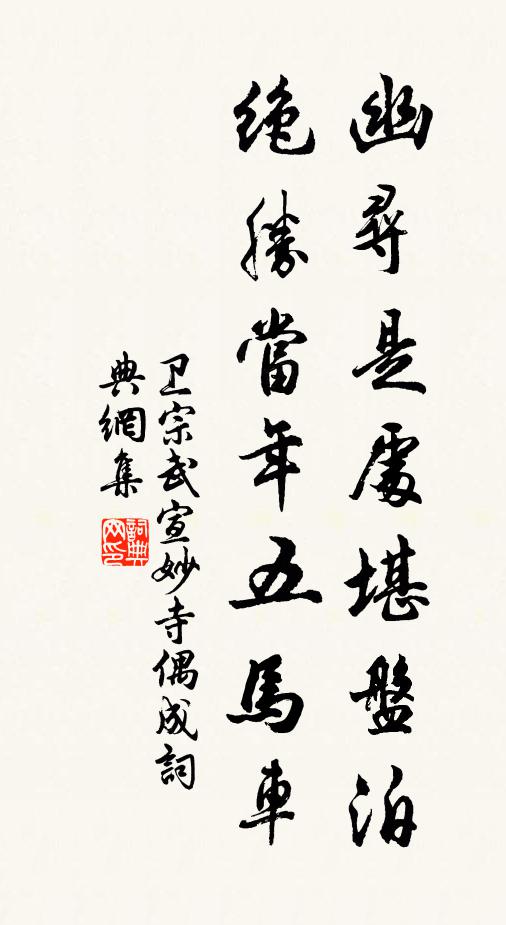 幽尋是處堪盤泊
絶勝當年五馬車
卫宗武宣妙寺偶成詞
典網集
詞典
网印